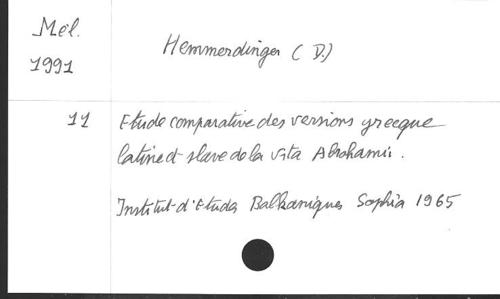 Mél.
1991
Hemmerdinger (D.)
11
Etude comparative des versions grecque
latine et slave de la vita Abrahamii.
Institut d'Etudes Balkaniques Sophia 1965